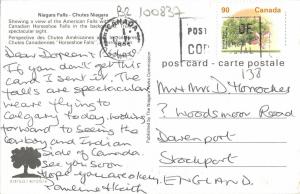 Niagara Falls - Chutes Niagara
Showing a view of the American Falls
"Horseshoe Falls" in the background
spectacular sight.
Perspective des Chutes Américaines
Chutes Canadiennes "Horseshoe Falls"
B2 100837
CANADA
POST
CODE
90 Canada
post card - carte postale
138
Dear Doreen
If you don't get this
card I sent it. The
falls are spectacular
we are flying to
Calgary today, looking
forward to seeing the
Cowboy and Indian
Side of Canada.
See you soon
Hope you are okey
Pauline & Keith
Published by The Niagara Parks Commission
Mr & Mrs D Horrocks
3 Woodsmoor Road
Davenport
Stockport
ENGLAND.